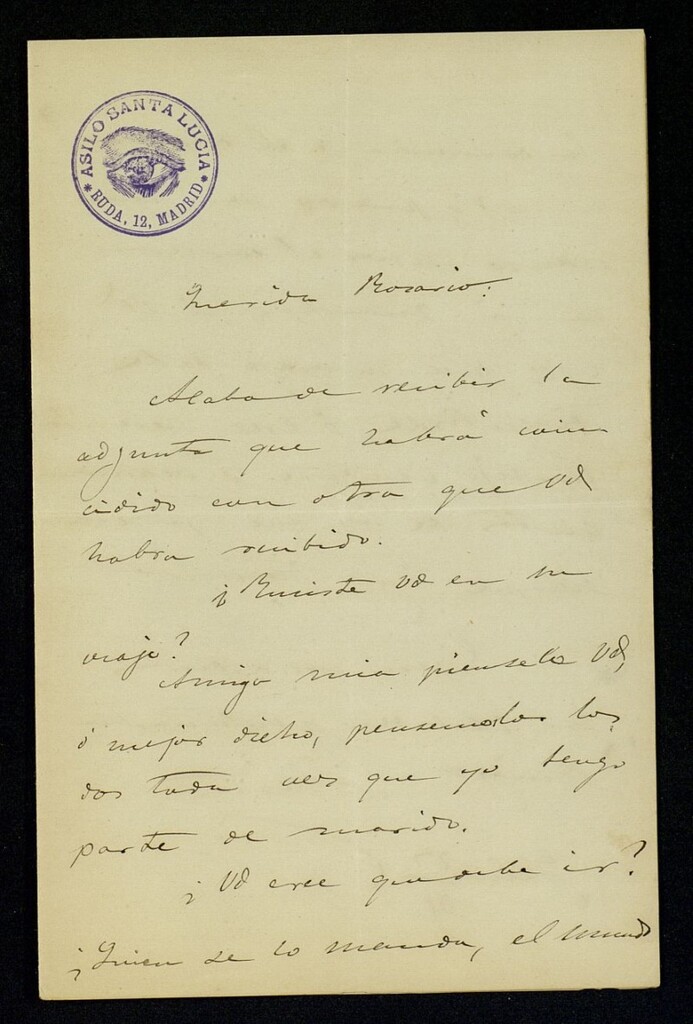 ASILO SANTA LUCIA
* RUDA, 12, MADRID *
Querida Rosario:
Acabo de recibir la
adjunta que habrá coin
cidido con otra que Vd
habra recibido.
¿ Vd en su
viaje?
Amiga mia pienselo Vd,
ó mejor dicho, pensemoslo los
dos toda vez que yo tengo
parte de marido.
¿Vd cree que debe ir?
¿Quien se lo manda, el mundo